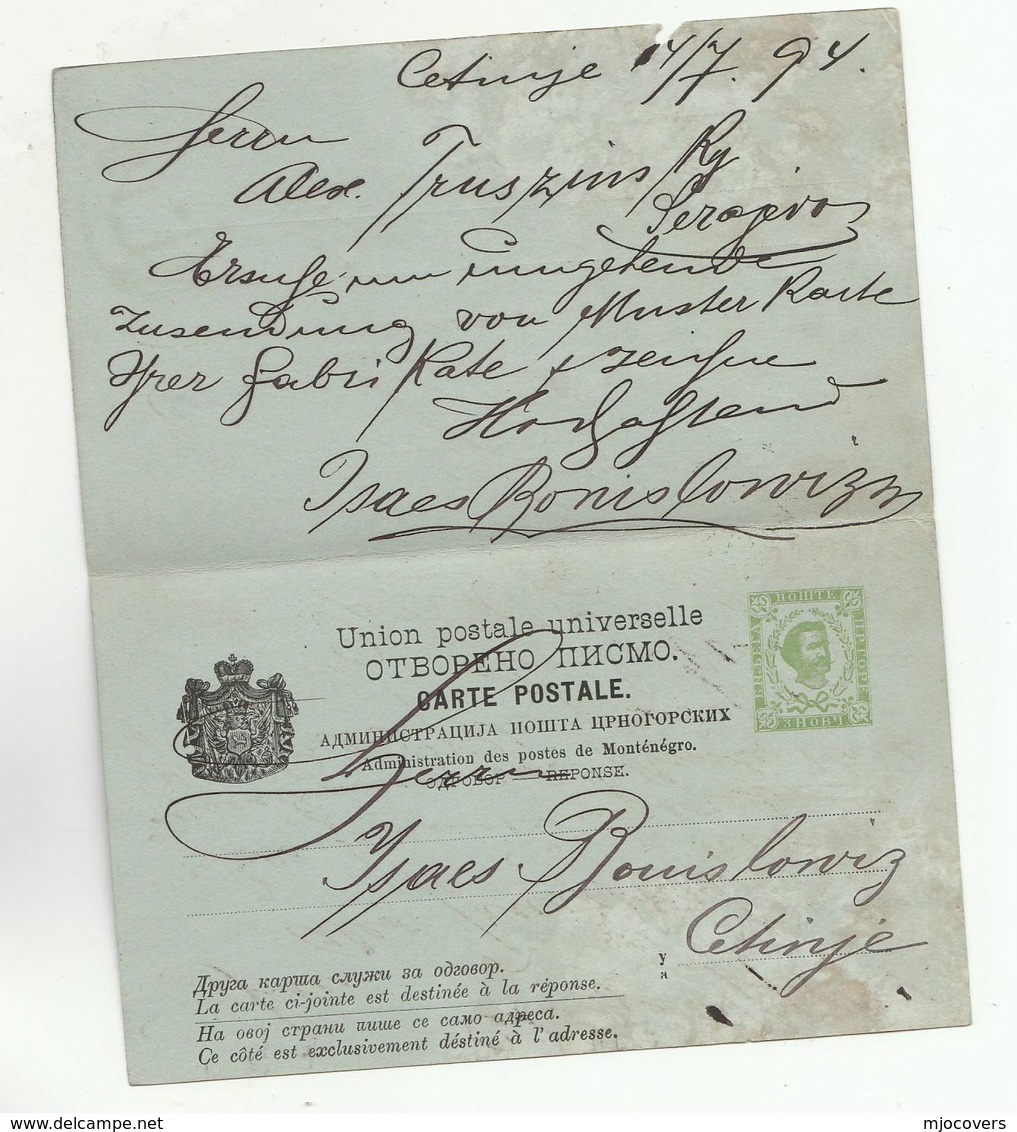 Cetinje 14/7. 94.
Herrn
Alex. Truszinsky
Serajevo
Ersuche um umgehende
Zusendung von Muster Karte
Ihrer Fabrikate & zeichne
Hochachtend
Isaes Bonislowiz
Union postale universelle
ОТВОРЕНО ПИСМО.
CARTE POSTALE.
АДМИНИСТРАЦИЈА ПОШТА ЦРНОГОРСКИХ
Administration des postes de Monténégro.
ОДГОВОР — REPONSE.
ПОШТЕ
ЦРГОРЕ
3 НОВЧ
Herrn
Isaes Bonislowiz
у
a
Cetinje
Друга карта служи за одговор.
La carte ci-jointe est destinée à la réponse.
На овој страни пише се само адреса.
Ce côté est exclusivement déstiné à l'adresse.
delcampe.net
mjocovers